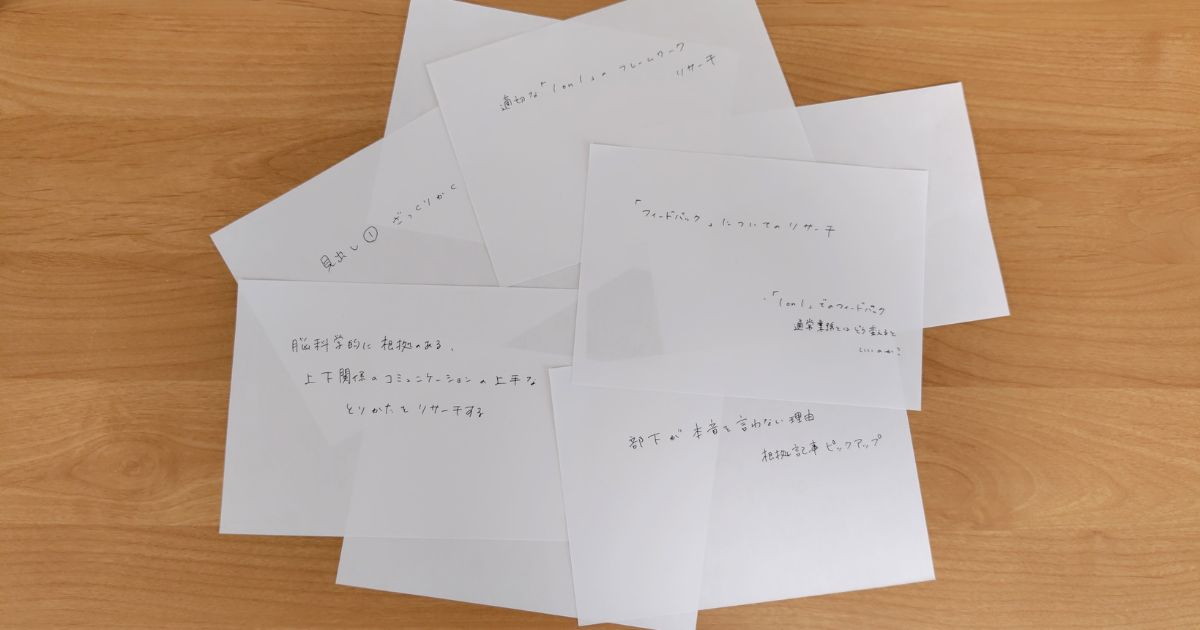 適切な「1on1」のフレームワーク
リサーチ
見出し① ざっくりかく
「フィードバック」についてのリサーチ
・「1on1」でのフィードバック
通常業務とはどう変えると
いいのか?
脳科学的に根拠のある、
上下関係のコミュニケーションの上手な
とりかたをリサーチする
部下が本音を言わない理由
根拠記事ピックアップ